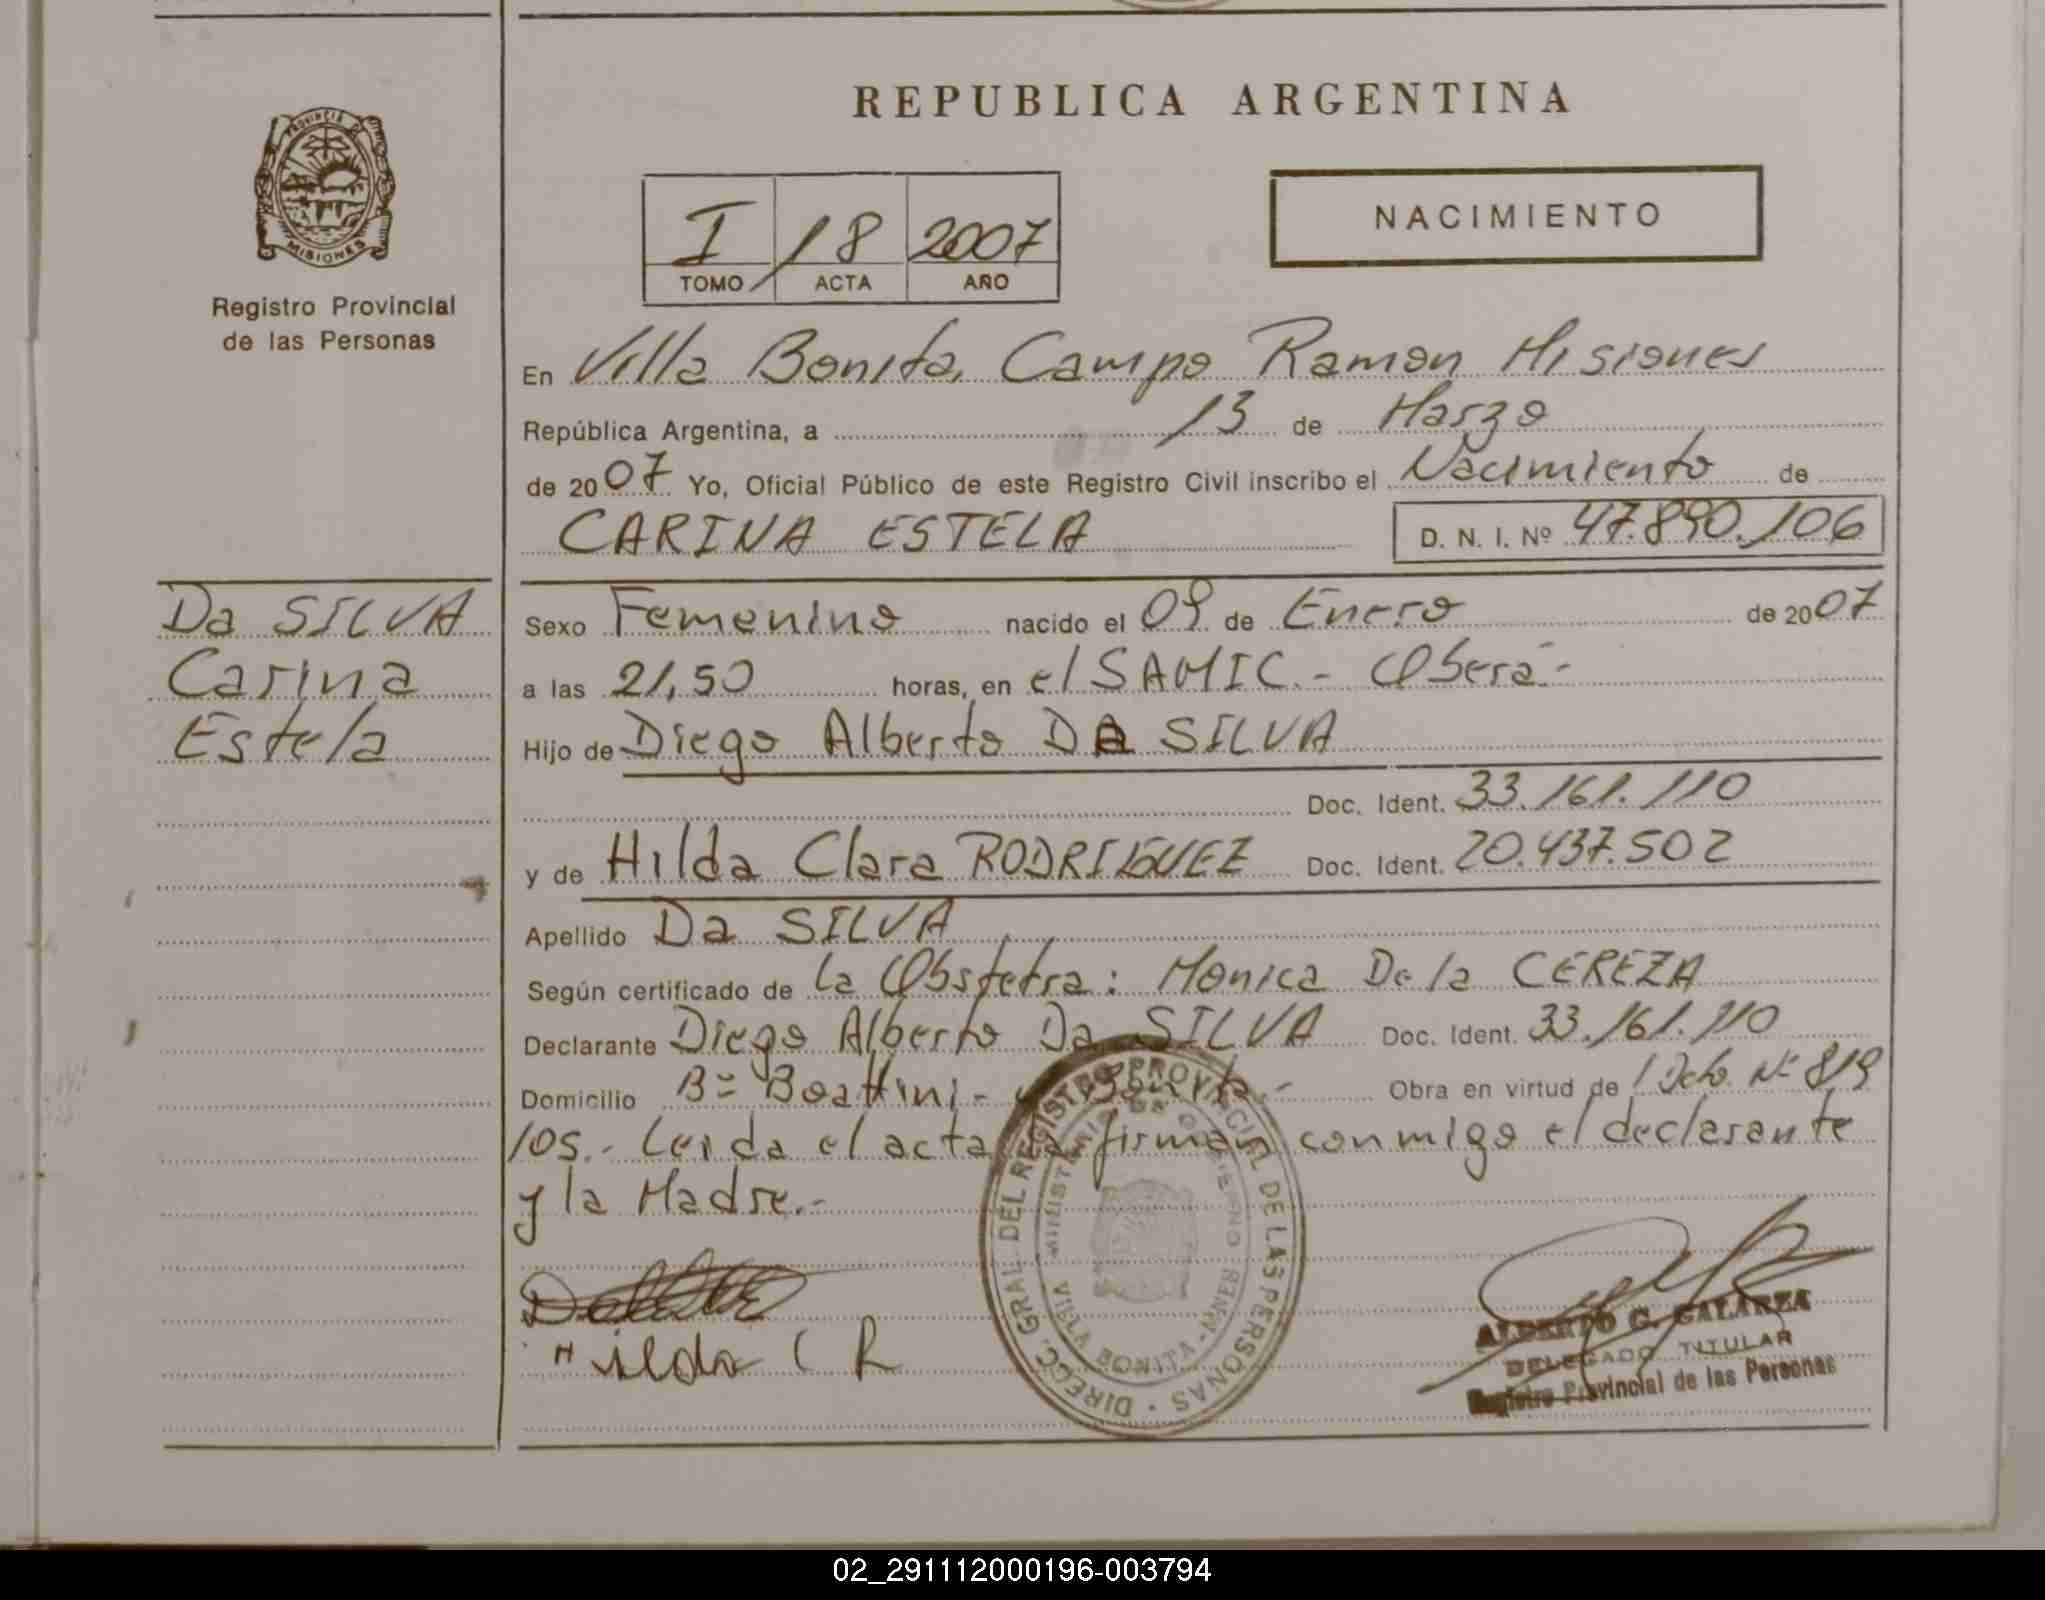 REPUBLICA ARGENTINA
PROVINCIA DE
MISIONES
Registro Provincial
de las Personas
I 18 2007
TOMO ACTA AÑO
NACIMIENTO
En Villa Bonita, Campo Ramon Misiones
República Argentina, a 13 de Marzo
de 2007 Yo, Oficial Público de este Registro Civil inscribo el Nacimiento de
CARINA ESTELA D. N. I. Nº 47.890.106
Da SILVA
Carina
Estela
Sexo Femenino nacido el 09 de Enero de 2007
a las 21,50 horas, en el SAMIC.- Oberá-
Hijo de Diego Alberto DA SILVA
Doc. Ident. 33.161.110
y de Hilda Clara RODRIGUEZ Doc. Ident. 20.437.502
Apellido Da SILVA
Según certificado de la Obstetra: Monica De la CEREZA
Declarante Diego Alberto Da SILVA Doc. Ident. 33.161.110
Domicilio Bº Boattini- Obra en virtud de / Dcto. Nº 819
/05.- Leida el acta la firman conmigo el declarante
y la Madre.-
Hilda C R
DIREC. GRAL. DEL REGISTRO PROVINCIAL DE LAS PERSONAS
MINISTERIO DE GOBIERNO
VILLA BONITA - MNES
ALBERTO G. GALARZA
DELEGADO TITULAR
Registro Provincial de las Personas
02_291112000196-003794